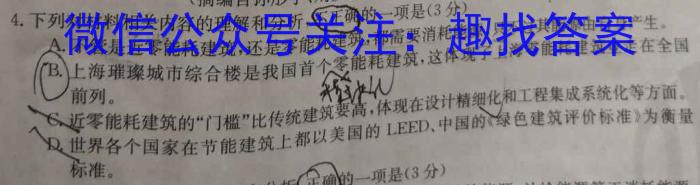 (摘编自
4.下列
相关内容的理解和分析,
正确的一项是(3分)
微信公众号关注:趣找答案
A.
零能耗建筑,还是
需要消耗
产生。
B.上海璀璨城市综合楼是我国首个零能耗建筑,这体现
在全国
前列。
C.近零能耗建筑的“门槛”比传统建筑要高,体现在设计精细化和工程集成系统化等方面。
D.世界各个国家在节能建筑上都以美国的LEED、中国的《绿色建筑评价标准》为衡量
标准。
正确的一项是(3分)